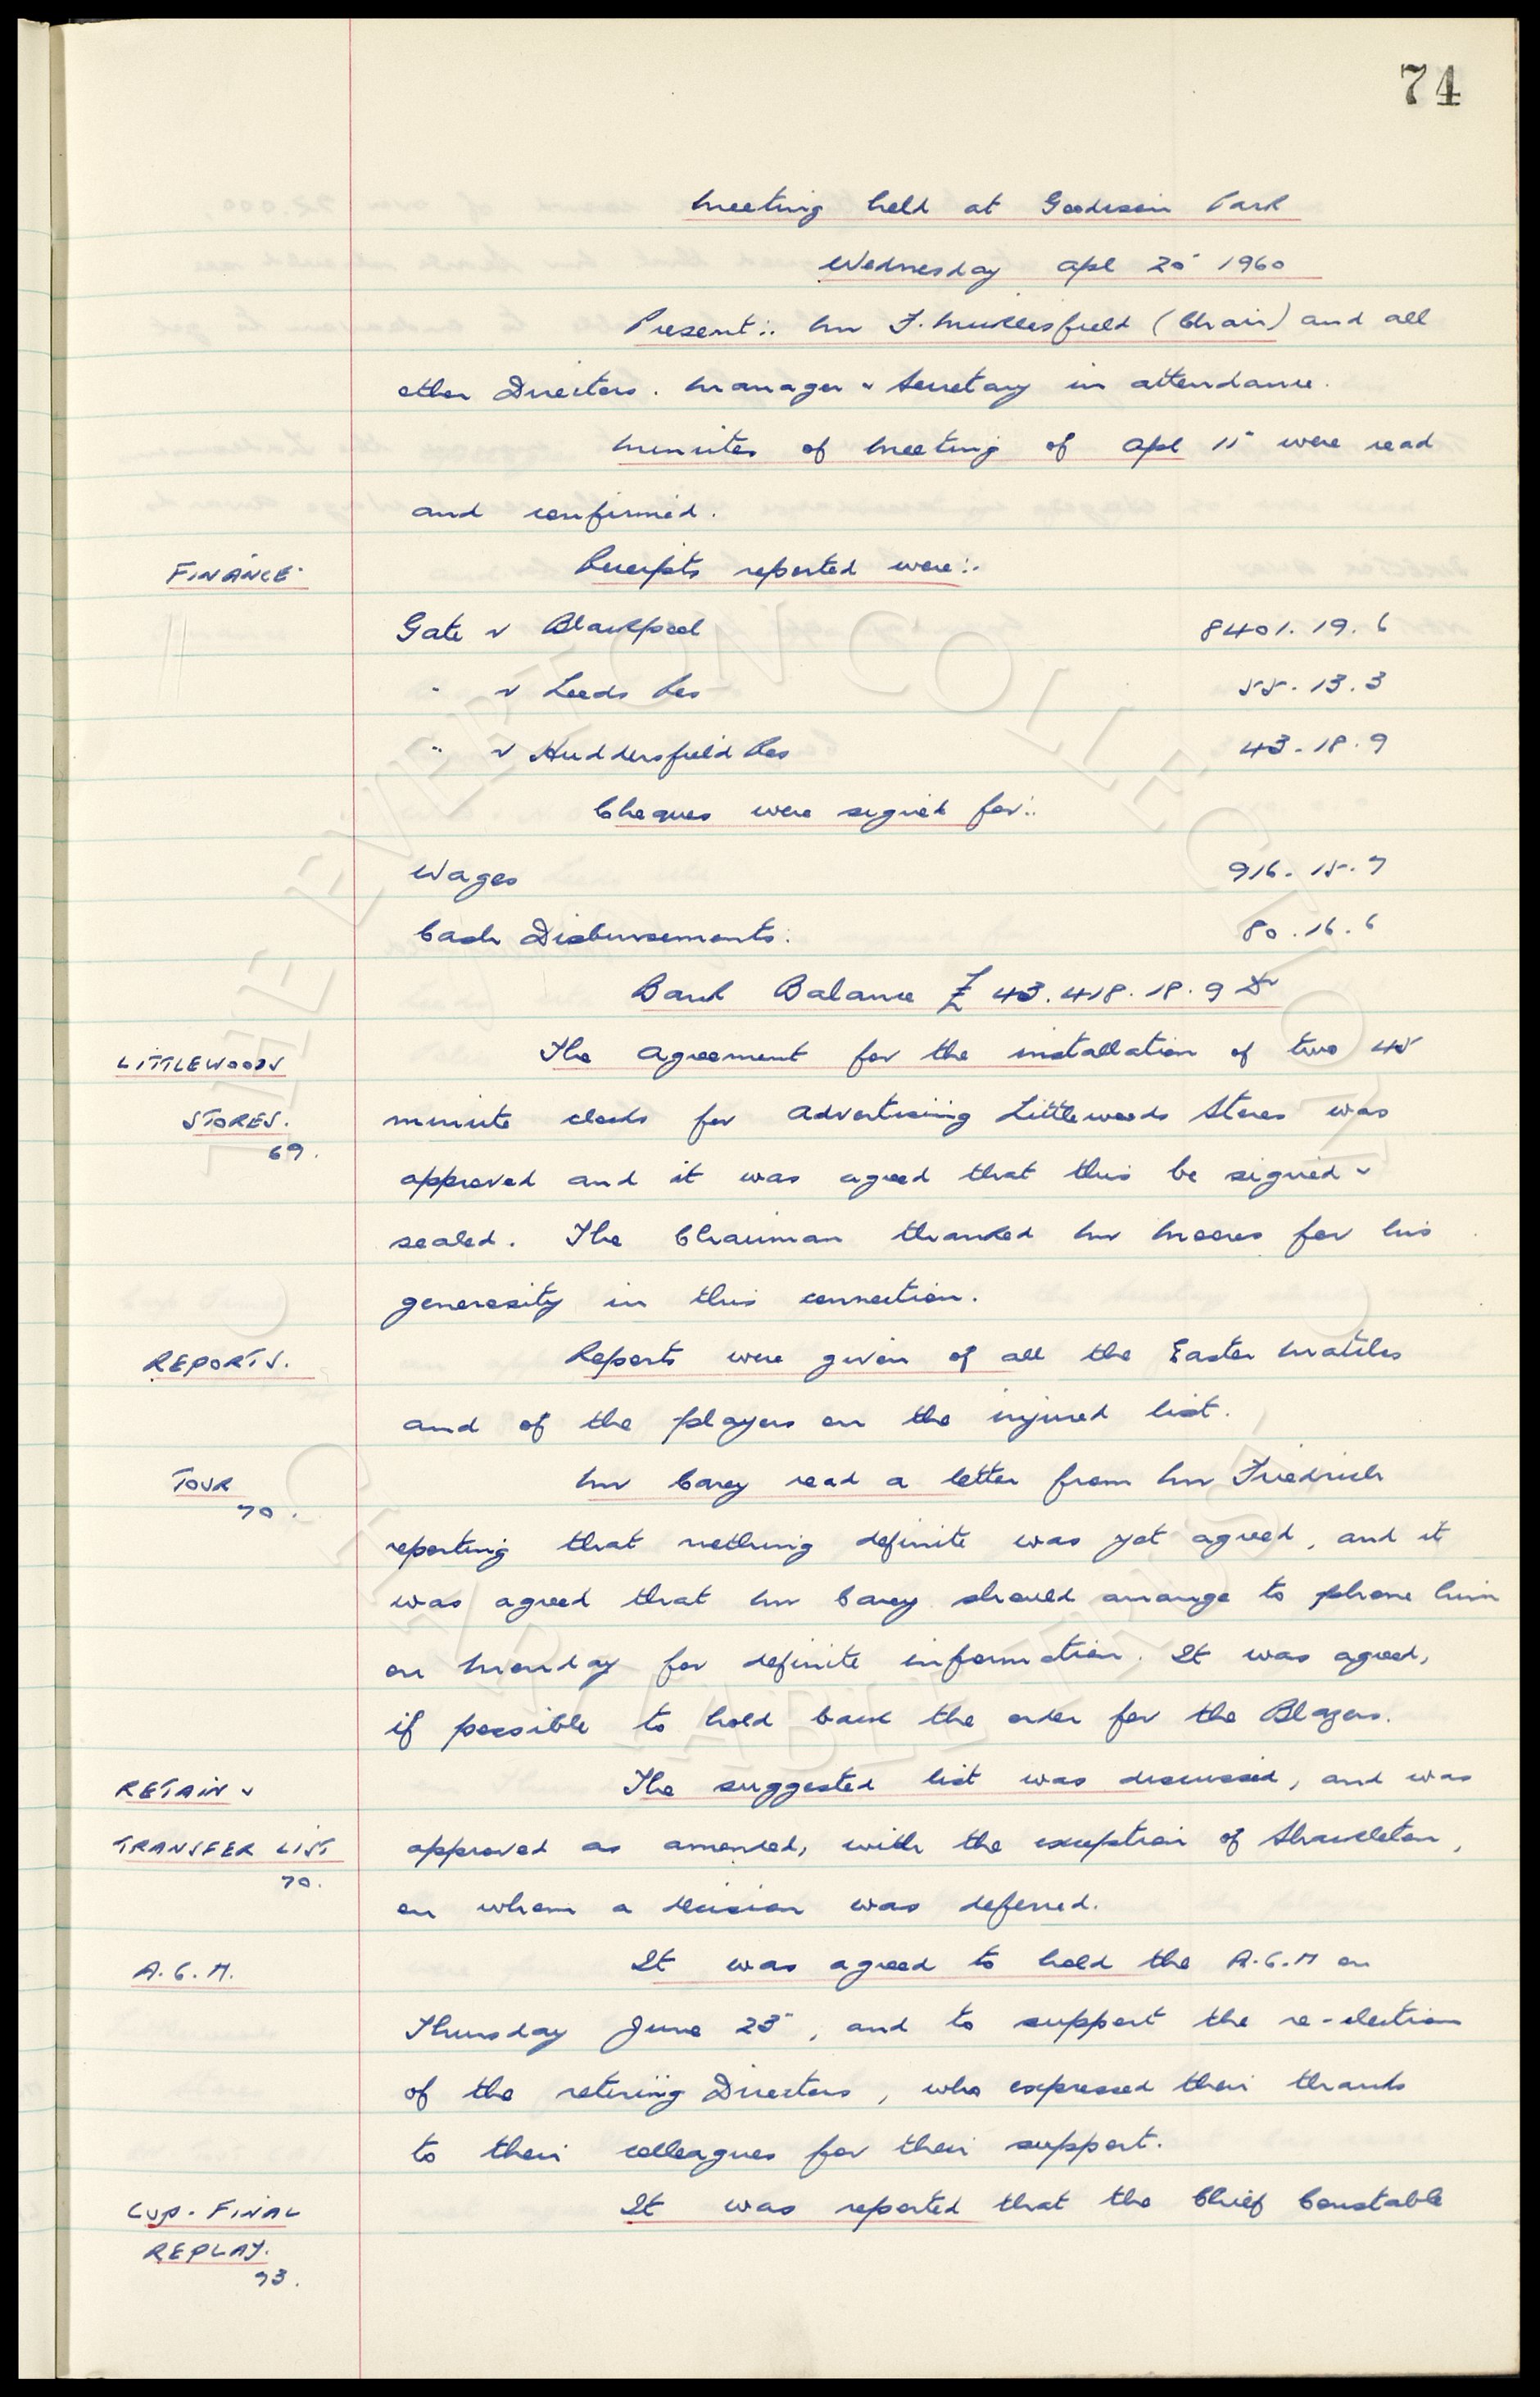 74
Meeting held at Goodison Park
Wednesday Apl 20" 1960
Present:. Mr F. Micklesfield (Chair) and all
other Directors. Manager & Secretary in attendance.
Minutes of Meeting of Apl 11" were read
and confirmed.
FINANCE. Receipts reported were:.
Gate v Blackpool 8401. 19. 6
" v Leeds Res 55. 13. 3
" v Huddersfield Res 43. 18. 9
Cheques were signed for:.
Wages 916. 15. 7
Cash Disbursements. 80. 16. 6
Bank Balance £ 43.418. 18. 9 Dr
LITTLEWOODS The Agreement for the installation of two 45
STORES. minute clocks for advertising Littlewoods Stores was
69.
approved and it was agreed that this be signed &
sealed. The Chairman thanked Mr Moores for his
generosity in this connection.
REPORTS. Reports were given of all the Easter Matches
and of the players on the injured list.
TOUR Mr Carey read a letter from Mr Friedrich
70.
reporting that nothing definite was yet agreed, and it
was agreed that Mr Carey should arrange to phone him
on Monday for definite information. It was agreed,
if possible to hold back the order for the Blazers.
RETAIN & The suggested list was discussed, and was
TRANSFER LIST approved as amended, with the exception of Shackleton,
70.
on whom a decision was deferred.
A.G.M. It was agreed to hold the A.G.M on
Thursday June 23", and to support the re-election
of the retiring Directors, who expressed their thanks
to their colleagues for their support.
CUP. FINAL It was reported that the Chief Constable
REPLAY.
73.